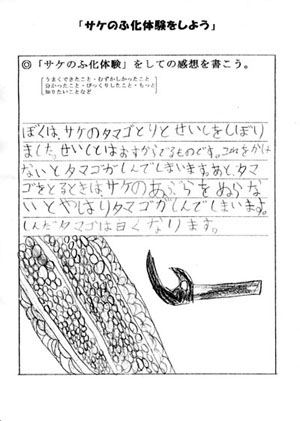 「サケのふ化体験をしよう」
◎「サケのふ化体験」をしての感想を書こう。
うまくできたこと・むずかしかったこと
分かったこと・びっくりしたこと・もっと
知りたいことなど
ぼくは、サケのタマゴとりとせいしをしぼり
ました。せいしとはおすからでるものです。これをかけ
ないとタマゴがしんでしまいます。あと、タマ
ゴをとるときはサケのあぶらをぬらな
いとやはりタマゴがしんでしまいます。
しんだタマゴは白くなります。